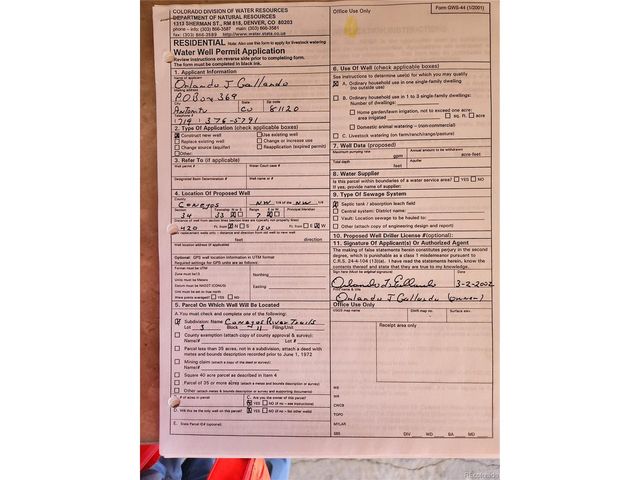 COLORADO DIVISION OF WATER RESOURCES
DEPARTMENT OF NATURAL RESOURCES
1313 SHERMAN ST., RM 818, DENVER, CO 80203
phone - info: (303) 866-3587 main: (303) 866-3581
fax: (303) 866-3589 http://www.water.state.co.us
Office Use Only
Form GWS-44 (1/2001)
RESIDENTIAL Note: Also use this form to apply for livestock watering
Water Well Permit Application
Review instructions on reverse side prior to completing form.
The form must be completed in black ink.
1. Applicant Information
Name of applicant
Orlando J Gallardo
Mailing address
P.O Box 369
City State Zip code
Antonito CO 81120
Telephone
(719) 376-5791
2. Type Of Application (check applicable boxes)
Construct new well Use existing well
Replace existing well Change or increase use
Change source (aquifer) Reapplication (expired permit)
Other:
3. Refer To (if applicable)
Well permit # Water Court case #
Designated Basin Determination # Well name or #
4. Location Of Proposed Well
County
Conejos NW 1/4 of the NW 1/4
Section Township N or S Range E or W Principal Meridian
34 33 7
Distance of well from section lines (section lines are typically not property lines)
420 Ft. from N S 150 Ft. from E W
For replacement wells only - distance and direction from old well to new well
feet direction
Well location address (if applicable)
Optional: GPS well location information in UTM format
Required settings for GPS units are as follows:
Format must be UTM
Zone must be 13
Units must be Meters
Datum must be NAD27 (CONUS)
Unit must be set to true north
Were points averaged? YES NO
Northing
Easting
5. Parcel On Which Well Will Be Located
A. You must check and complete one of the following:
Subdivision: Name Conejos River Trails
Lot 3 Block 11 Filing/Unit
County exemption (attach copy of county approval & survey):
Name/# Lot #
Parcel less than 35 acres, not in a subdivision, attach a deed with
metes and bounds description recorded prior to June 1, 1972
Mining claim (attach a copy of the deed or survey):
Name/#
Square 40 acre parcel as described in Item 4
Parcel of 35 or more acres (attach a metes and bounds description or survey)
Other (attach metes & bounds description or survey and supporting documents)
# of acres in parcel C. Are you the owner of this parcel?
YES NO (if no - see instructions)
D. Will this be the only well on this parcel? YES NO (if no - list other wells)
E. State Parcel ID# (optional):
6. Use Of Well (check applicable boxes)
See instructions to determine use(s) for which you may qualify
A. Ordinary household use in one single-family dwelling
(no outside use)
B. Ordinary household use in 1 to 3 single-family dwellings:
Number of dwellings:
Home garden/lawn irrigation, not to exceed one acre:
area irrigated sq. ft. acre
Domestic animal watering – (non-commercial)
C. Livestock watering (on farm/ranch/range/pasture)
7. Well Data (proposed)
Maximum pumping rate Annual amount to be withdrawn
gpm acre-feet
Total depth Aquifer
feet
8. Water Supplier
Is this parcel within boundaries of a water service area? YES NO
If yes, provide name of supplier:
9. Type Of Sewage System
Septic tank / absorption leach field
Central system: District name:
Vault: Location sewage to be hauled to:
Other (attach copy of engineering design and report)
10. Proposed Well Driller License #(optional):
11. Signature Of Applicant(s) Or Authorized Agent
The making of false statements herein constitutes perjury in the second
degree, which is punishable as a class 1 misdemeanor pursuant to
C.R.S. 24-4-104 (13)(a). I have read the statements herein, know the
contents thereof and state that they are true to my knowledge.
Sign here (Must be original signature) Date
Orlando J. Gallardo 3-2-2002
Print name & title
Orlando J Gallardo (owner)
Office Use Only
USGS map name DWR map no. Surface elev.
Receipt area only
WE
WR
CWCB
TOPO
MYLAR
SB5
DIV WD BA MD
REcolorado